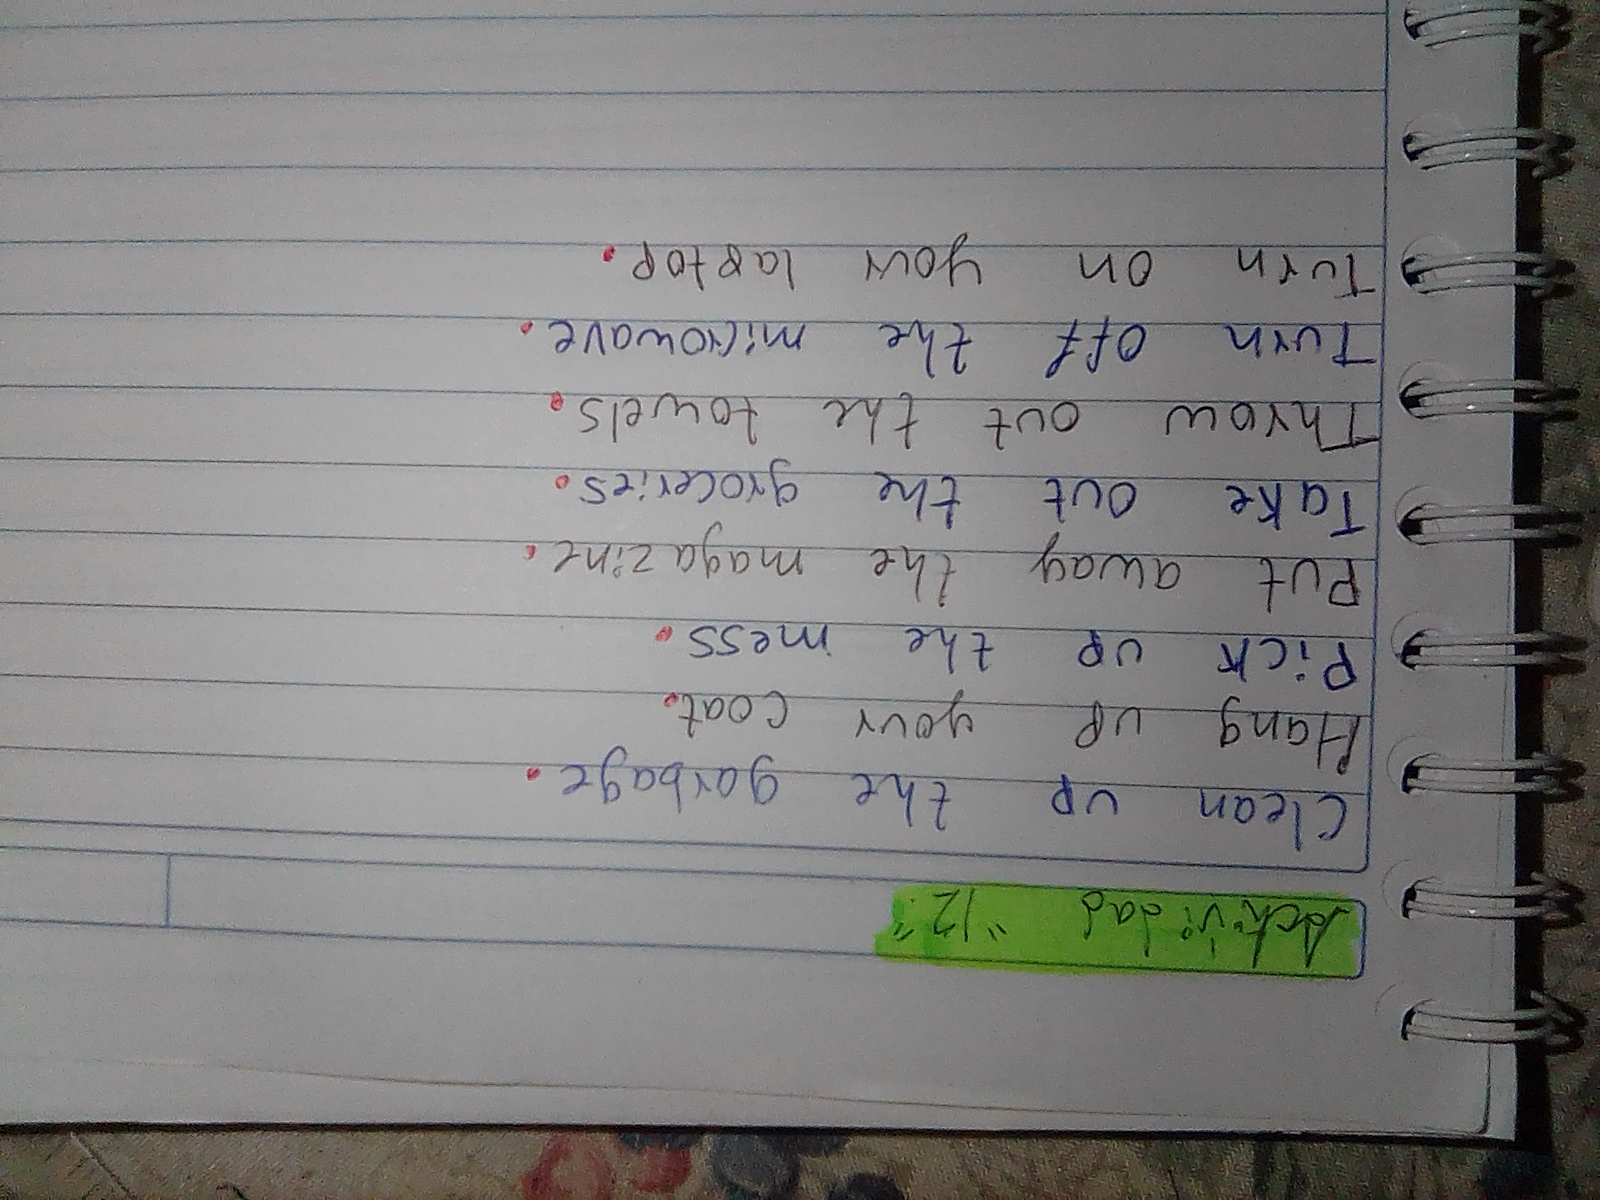 Actividad "12"
Clean up the garbage.
Hang up your coat.
Pick up the mess.
Put away the magazine.
Take out the groceries.
Throw out the towels.
Turn off the microwave.
Turn on your laptop.